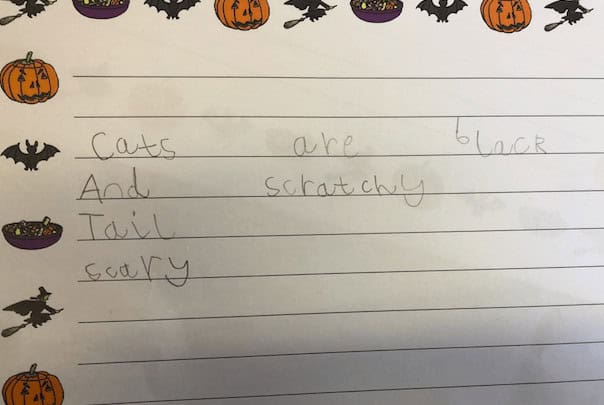 Cats are black
And scratchy
Tail
scary